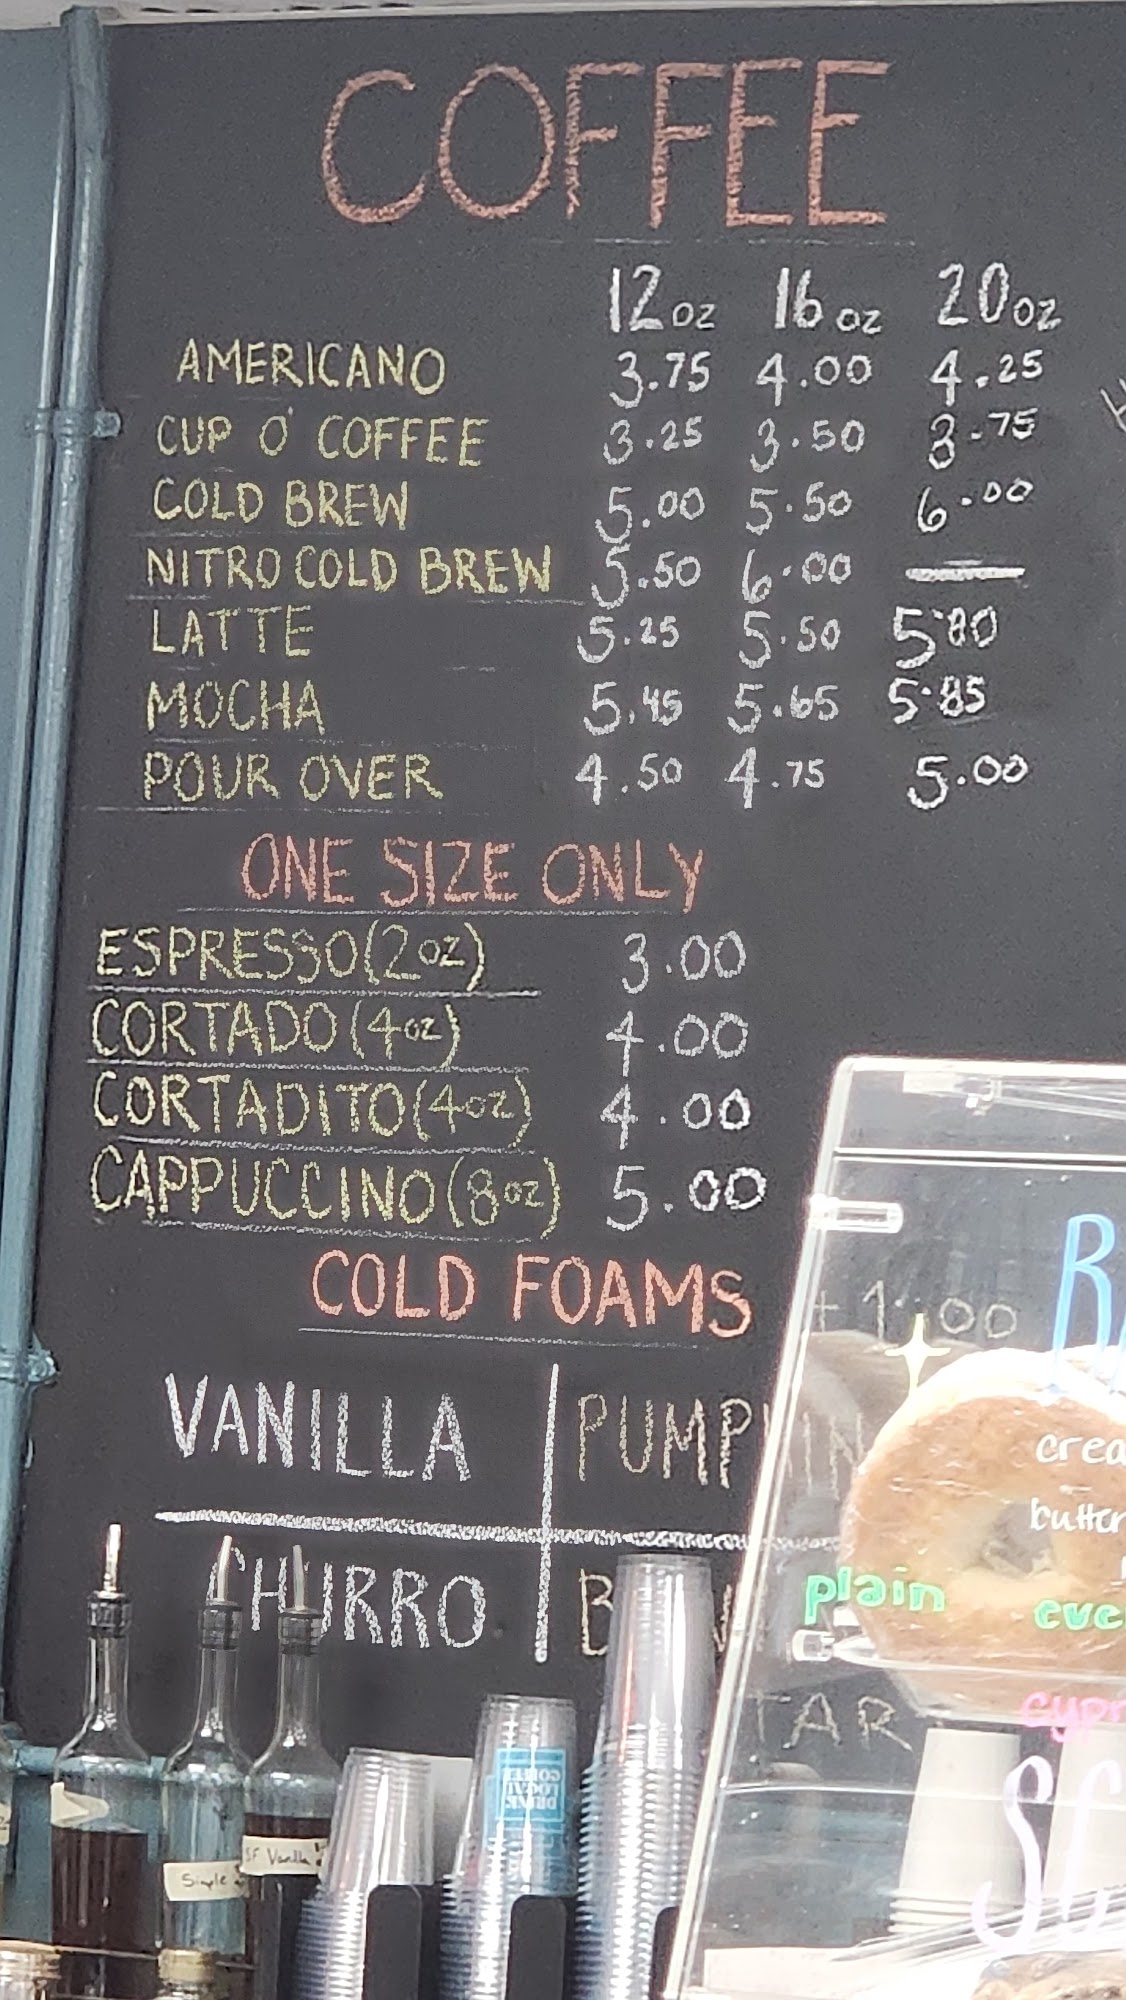 COFFEE
12oz 16oz 20oz
AMERICANO 3.75 4.00 4.25
CUP O' COFFEE 3.25 3.50 3.75
COLD BREW 5.00 5.50 6.00
NITRO COLD BREW 5.50 6.00 —
LATTE 5.25 5.50 5.80
MOCHA 5.45 5.65 5.85
POUR OVER 4.50 4.75 5.00
ONE SIZE ONLY
ESPRESSO (2oz) 3.00
CORTADO (4oz) 4.00
CORTADITO (4oz) 4.00
CAPPUCCINO (8oz) 5.00
COLD FOAMS +1.00
VANILLA
CHURRO
crea
butter
plain
eve
TAR
DRINK
LOCAL
COFFEE
SF Vanilla
Simple